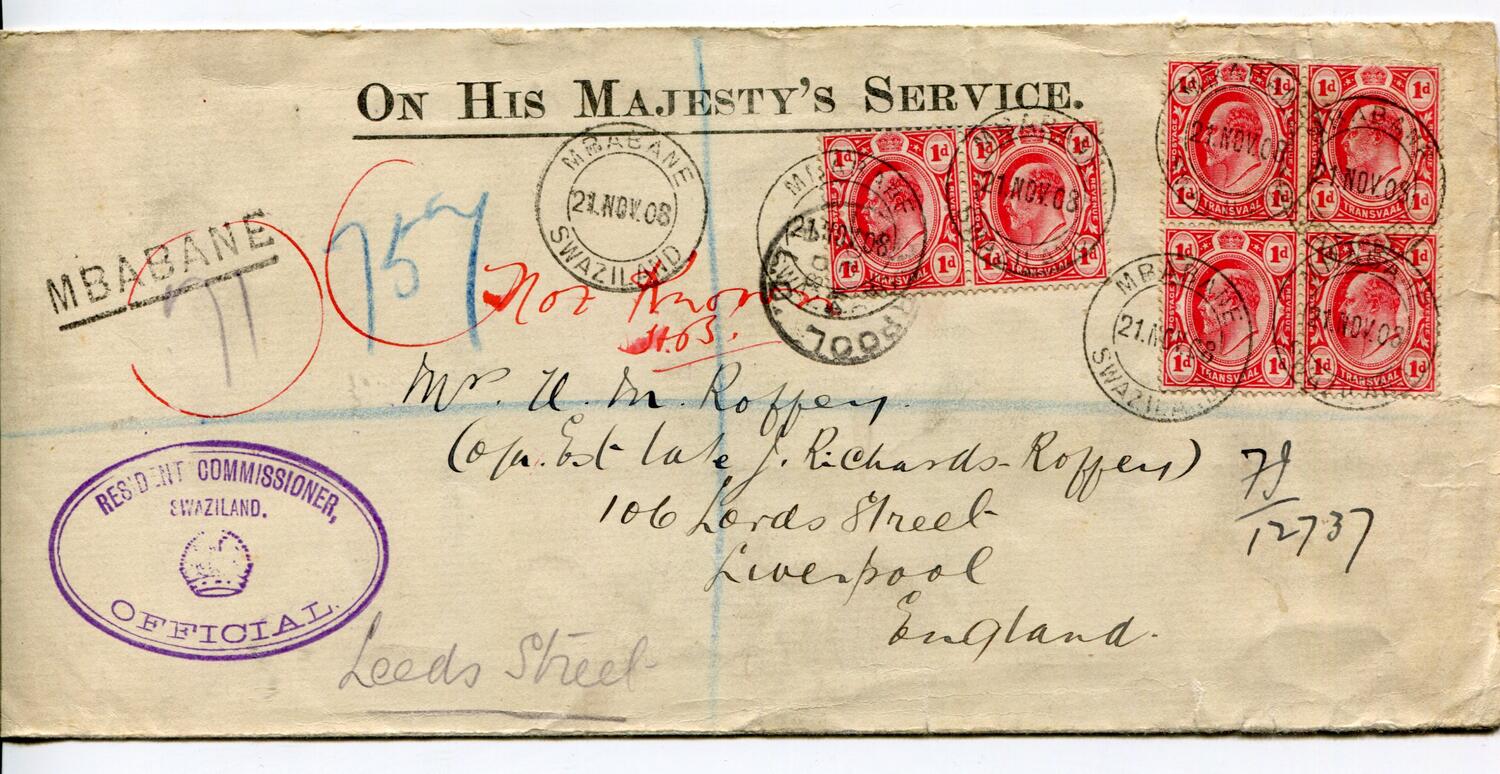 ON HIS MAJESTY'S SERVICE.
MBABANE
21.NOV.08
SWAZILAND
MBABANE
21.NOV.08
MBABANE
21.NOV.08
1d 1d
1d 1d
TRANSVAAL
1d 1d
1d 1d
TRANSVAAL
MBABANE
21.NOV.08
1d 1d
1d 1d
POSTAGE
MBABANE
21.NOV.08
1d 1d
1d 1d
REVENUE
TRANSVAAL
MBABANE
21.NOV.08
SWAZILAND
1d
1d 1d
POSTAGE
TRANSVAAL
MBABANE
21.NOV.08
1d
1d 1d
REVENUE
TRANSVAAL
MBABANE
71
757
Not Known
LIVERPOOL
Mr. H. M. Roffey.
(o/a. Est late J. Richards-Roffey)
106 Lords Street
Liverpool
England.
12737
RESIDENT COMMISSIONER,
SWAZILAND.
OFFICIAL.
Leeds Street